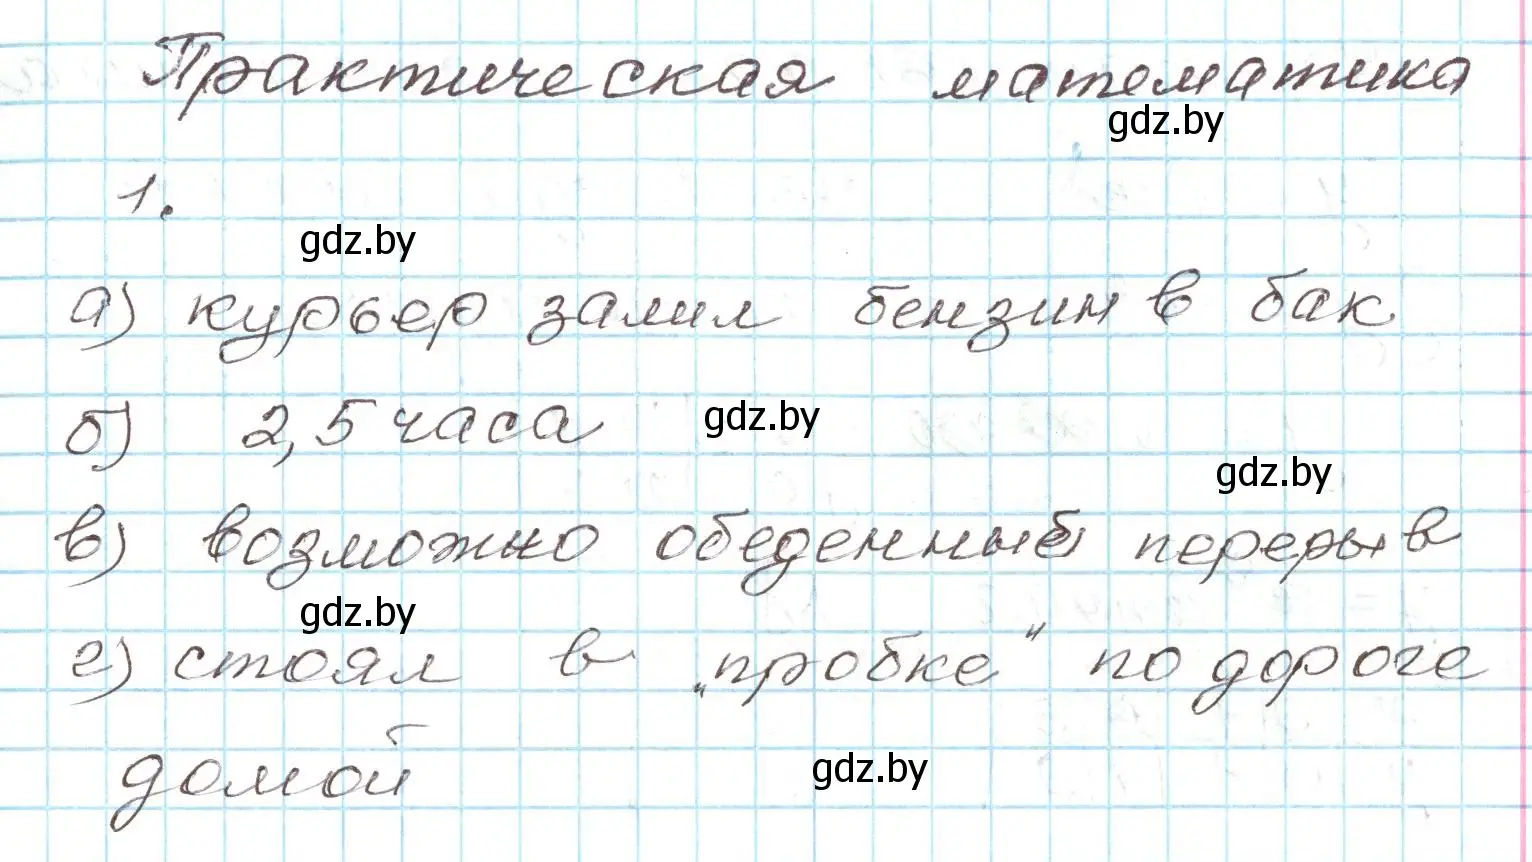 Практическая математика
gdz.by
1.
gdz.by
а) курьер залил бензин в бак
б) 2,5 часа
gdz.by
gdz.by
в) возможно обеденный перерыв
gdz.by
г) стоял в „пробке“ по дороге
домой
gdz.by